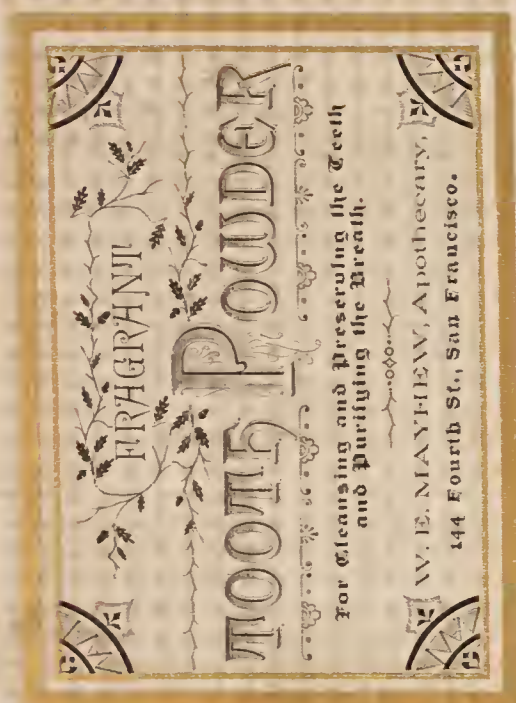 FRAGRANT
TOOTH POWDER
For Cleansing and Preserving the Teeth
and Purifying the Breath.
W. E. MAYHEW, Apothecary,
144 Fourth St., San Francisco.